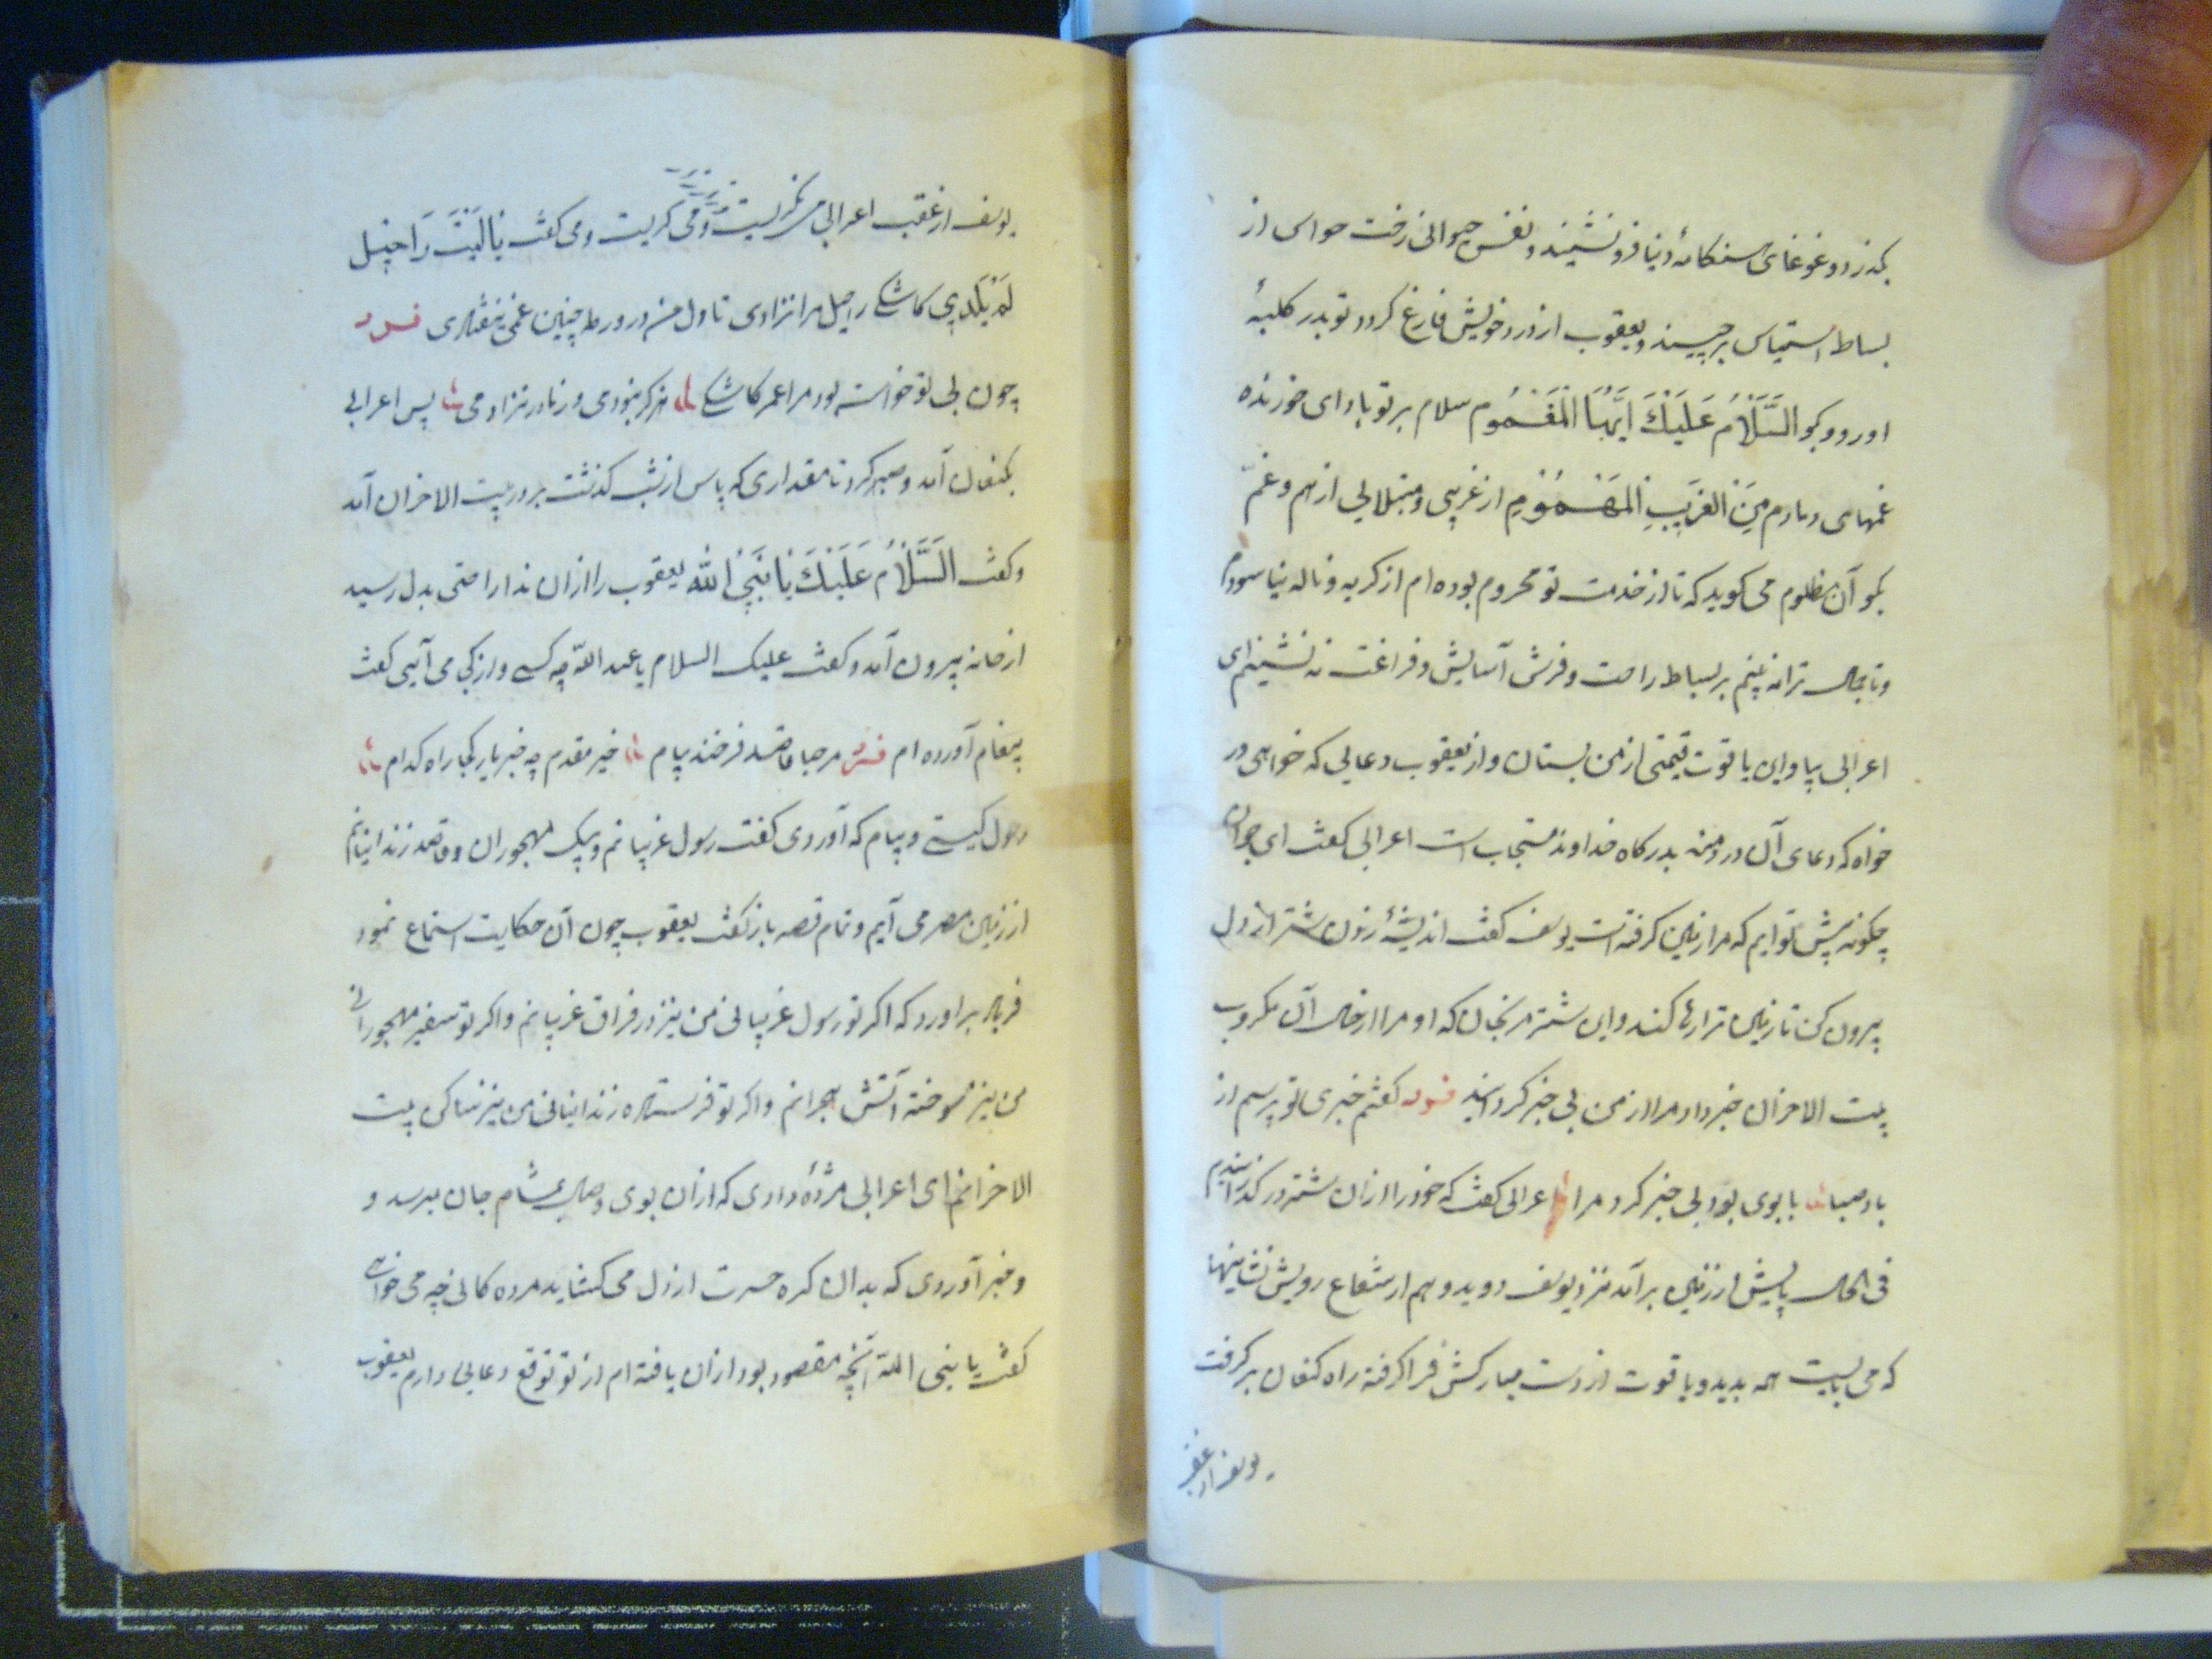 بکذرد و غوغای هنکامهٔ دنیا فرو نشیند و نفس حیوانی رخت حواس از
بساط استیناس برچیند و یعقوب از ورد خویش فارغ کردد تو بدر کلبهٔ
او رو و بکو السَّلَامُ عَلَیْكَ اَیُّهَا الْمَغْمُوم سلام بر تو باد ای خورندهٔ
غمهای دمادم مِنَ الْغَرِیبِ الْمَهْمُومِ از غریبی و مبتلایی از هم و غمّ
بکو آن مظلوم می کوید که تا از خدمت تو محروم بوده ام از کریه و ناله نیاسودم
و تا جمال ترا نه بینم بر بساط راحت و فرش آسایش و فراغت نه نشینم ای
اعرابی بیا و این یاقوت قیمتی از من بستان و از یعقوب دعایی که خواهی در
خواه که دعای آن دردمند بدرکاه خداوند مستجاب است اعرابی کفت ای جوان
چکونه پیش تو آیم که مرا زمین کرفته است یوسف کفت اندیشهٔ زدن شتر از دل
بیرون کن تا زمین ترا رها کند و این شتر مرنجان که او مرا از حال آن مکروب
بیت الاحزان خبر داد مرا از من بی خبر کردانید فرد کفتم خبری تو پرسم از
باد صبا با بوی تو بود بی خبر کرد مرا اعرابی کفت که خود را از زدن شتر در کذرانیدم
فی الحال پایش از زمین برآمد نزد یوسف دوید و هم از شعاع رویش نشانیها
که می بایست همه بدید و یاقوت از دست مبارکش فرا کرفته راه کنعان بر کرفت
یوسف از عقب
یوسف از عقب اعرابی می نکریست و می کریست و می کفت یَا لَیْتَ رَاحِیل
لَمْ تَلِدْنِی کاشکی راحیل مرا نزادی تا دل من در ورطه چنین غمی نیفتادی فرد
چون بی تو خواست بود مرا عمر کاشکی هرکز نبودمی و ز مادر نزادمی پس اعرابی
بکنعان آمد و صبر کرد تا مقداری که پاس از شب کذشت بر در بیت الاحزان آمد
و کفت السَّلَامُ عَلَیْكَ یَا نَبِیَّ الله یعقوب را از آن ندا راحتی بدل رسید
از خانه بیرون آمد و کفت علیک السلام یا عبد اللّه چه کسی و از کجا می آیی کفت
پیغام آورده ام فرد مرحبا قاصد فرخنده پیام خیر مقدم چه خبر یار کجا راه کدام
رسول کیستی و پیام که آوردی کفت رسول غریبانم و پیک مهجوران و قاصد زندانیانم
از زمین مصر می آیم و تمام قصه باز کفت یعقوب چون آن حکایت استماع نمود
فریاد برآورد که اکر تو رسول غریبانی من نیز در فراق غریبانم و اکر تو سفیر مهجورانی
من نیز سوخته آتش هجرانم و اکر تو فرستاده زندانیانی من نیز ساکن بیت
الاحزانم ای اعرابی مژدهٔ دادی که از آن بوی وصال بمشام جان میرسد و
و خبر آوردی که بدان کره حسرت از دل می کشاید مژده کانی چه می خواهی
کفت یا نبی اللّه آنچه مقصود بود از آن یافته ام از تو توقع دعایی دارم یعقوب